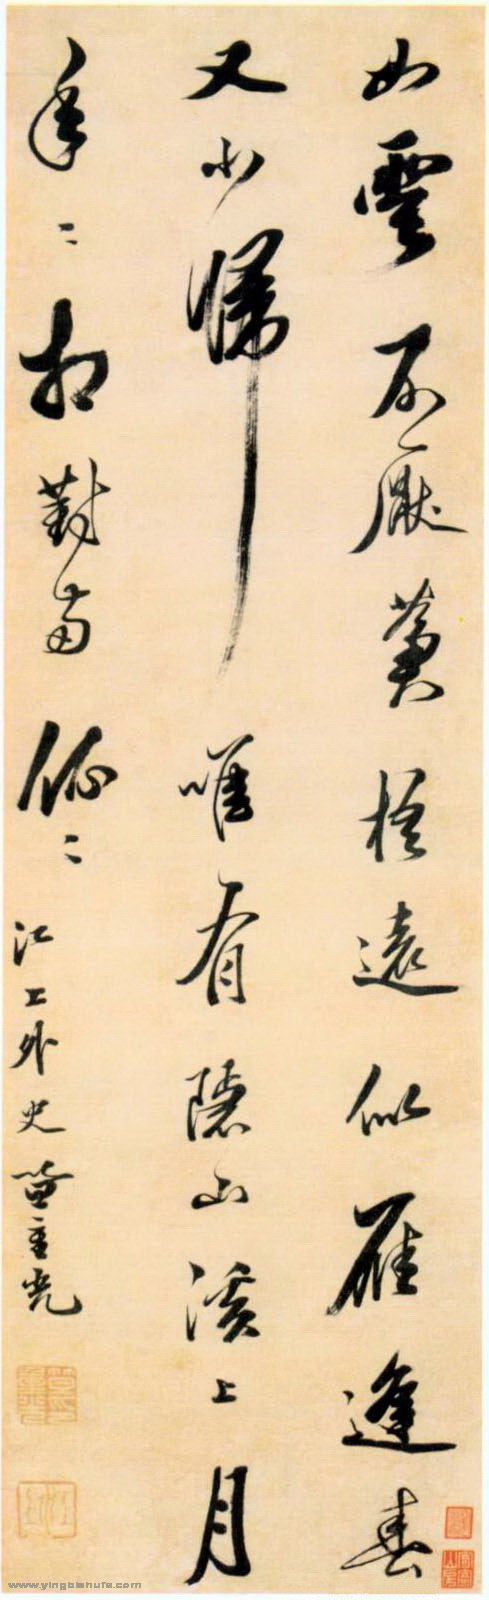 如雲不厭蒼梧遠似雁逢春
又北歸唯有隱山溪上月
年〻相對兩依〻
江上外史笪重光
www.yingbishufa.com